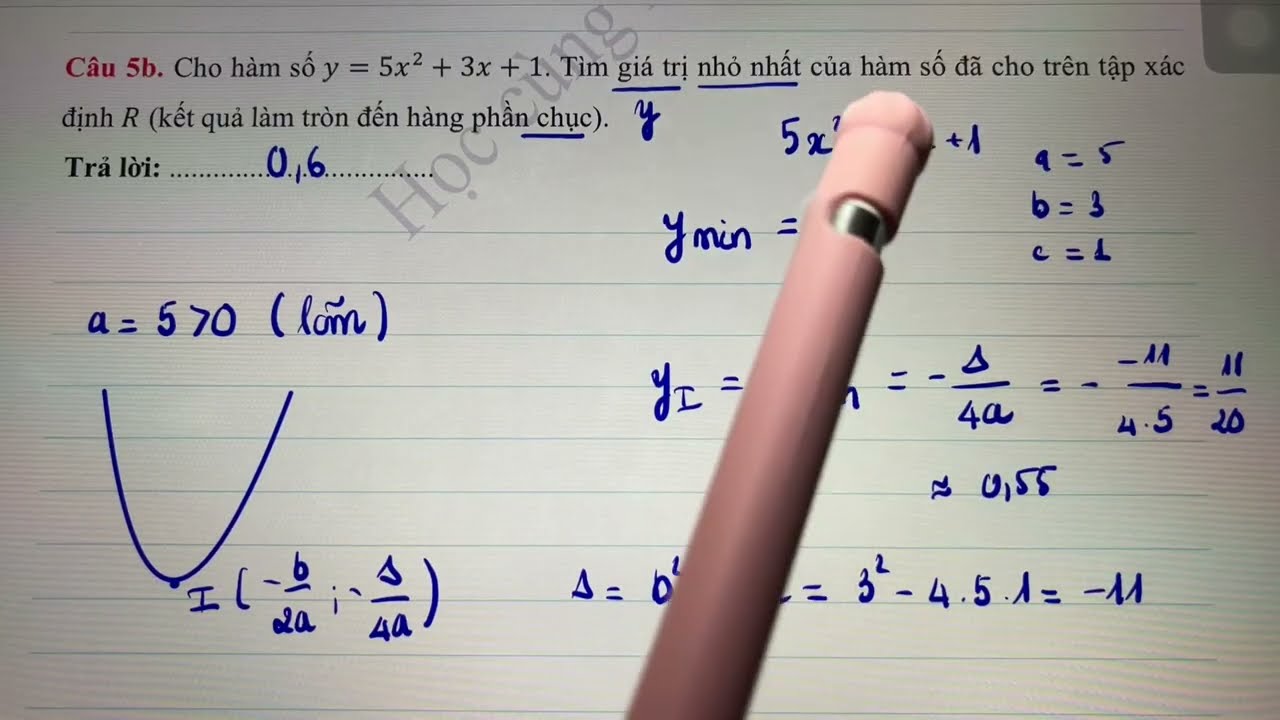 Câu 5b. Cho hàm số y = 5x² + 3x + 1. Tìm giá trị nhỏ nhất của hàm số đã cho trên tập xác
định R (kết quả làm tròn đến hàng phần chục). y
Trả lời: .............0,6...............
Học cùng
5x² +1
a = 5
b = 3
c = 1
y min =
a = 5 > 0 (lõm)
y I = = - Δ/4a = - -11/4.5 = 11/20
≈ 0,55
I (-b/2a ; -Δ/4a)
Δ = b² = 3² - 4.5.1 = -11